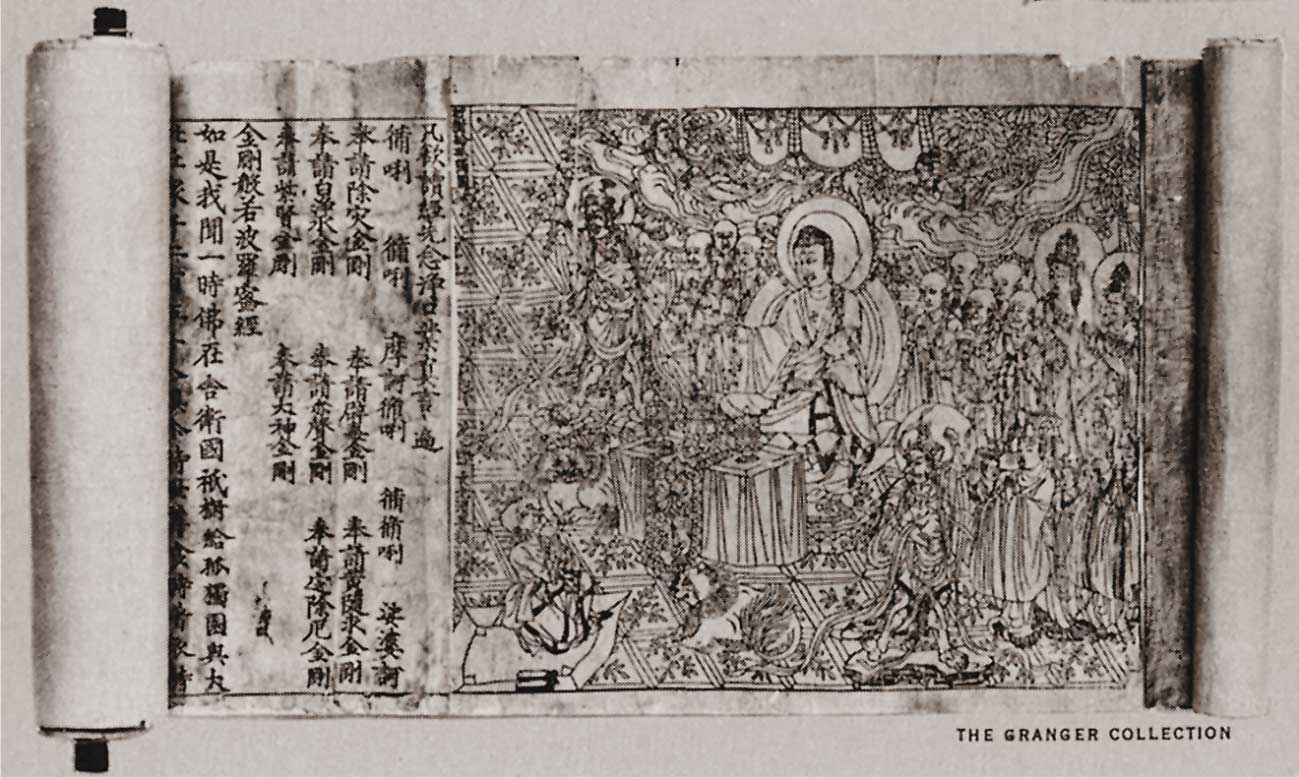 凡欲讀經先念淨口業真言一遍
脩唎 脩唎 摩訶脩唎 脩脩唎 娑婆訶
奉請除灾金剛 奉請辟毒金剛 奉請黃隨求金剛
奉請白淨水金剛 奉請赤聲金剛 奉請定除厄金剛
奉請紫賢金剛 奉請大神金剛
金剛般若波羅蜜經
如是我聞一時佛在舍衛國祇樹給孤獨園與大
THE GRANGER COLLECTION